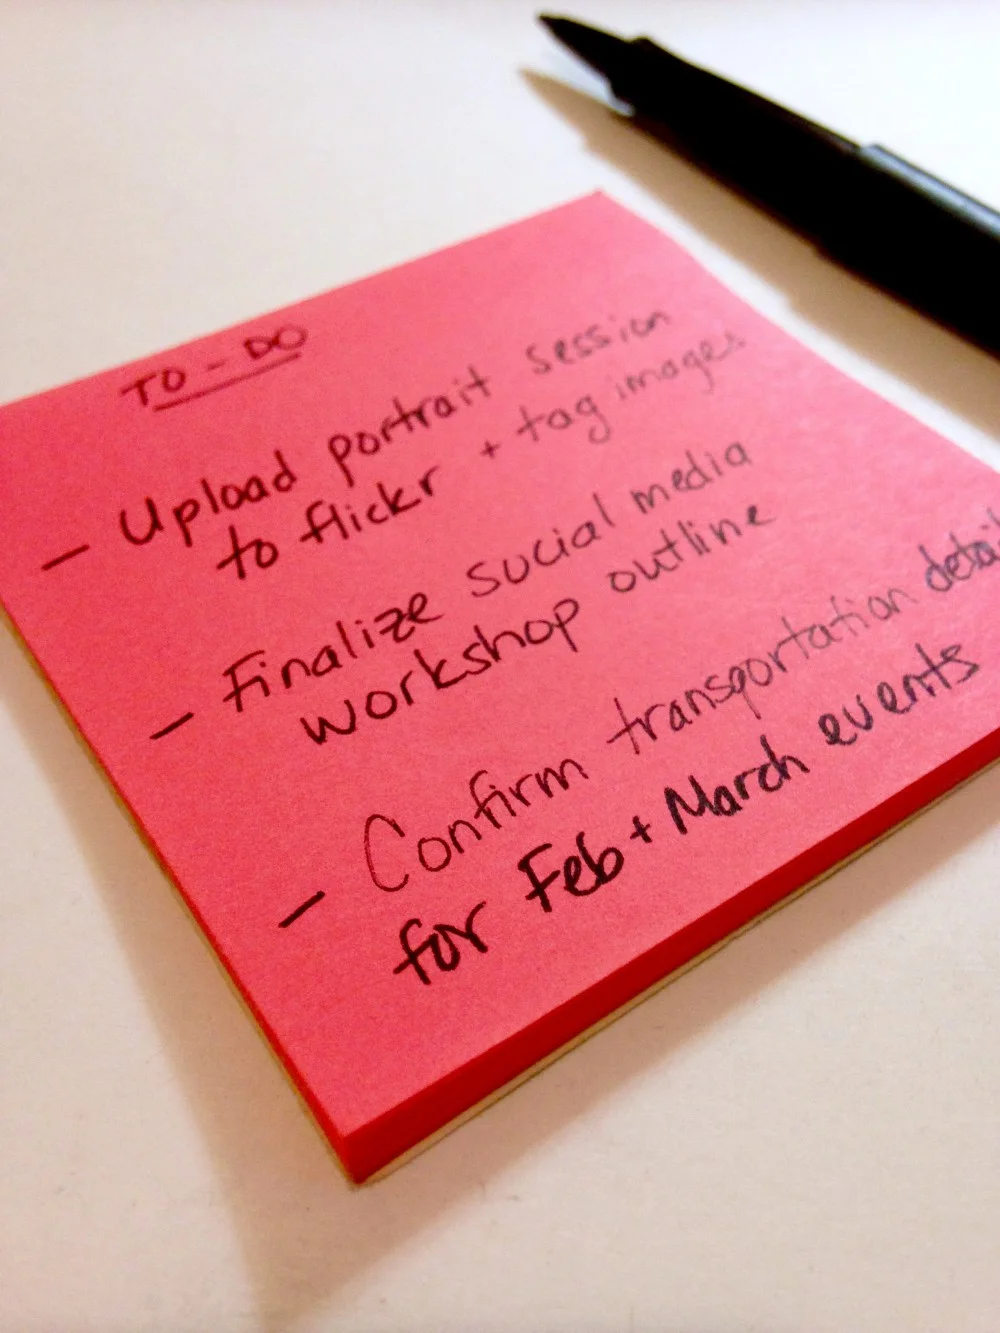 TO-DO
- Upload portrait session
to flickr + tag images
- Finalize social media
workshop outline
- Confirm transportation detail
for Feb + March events